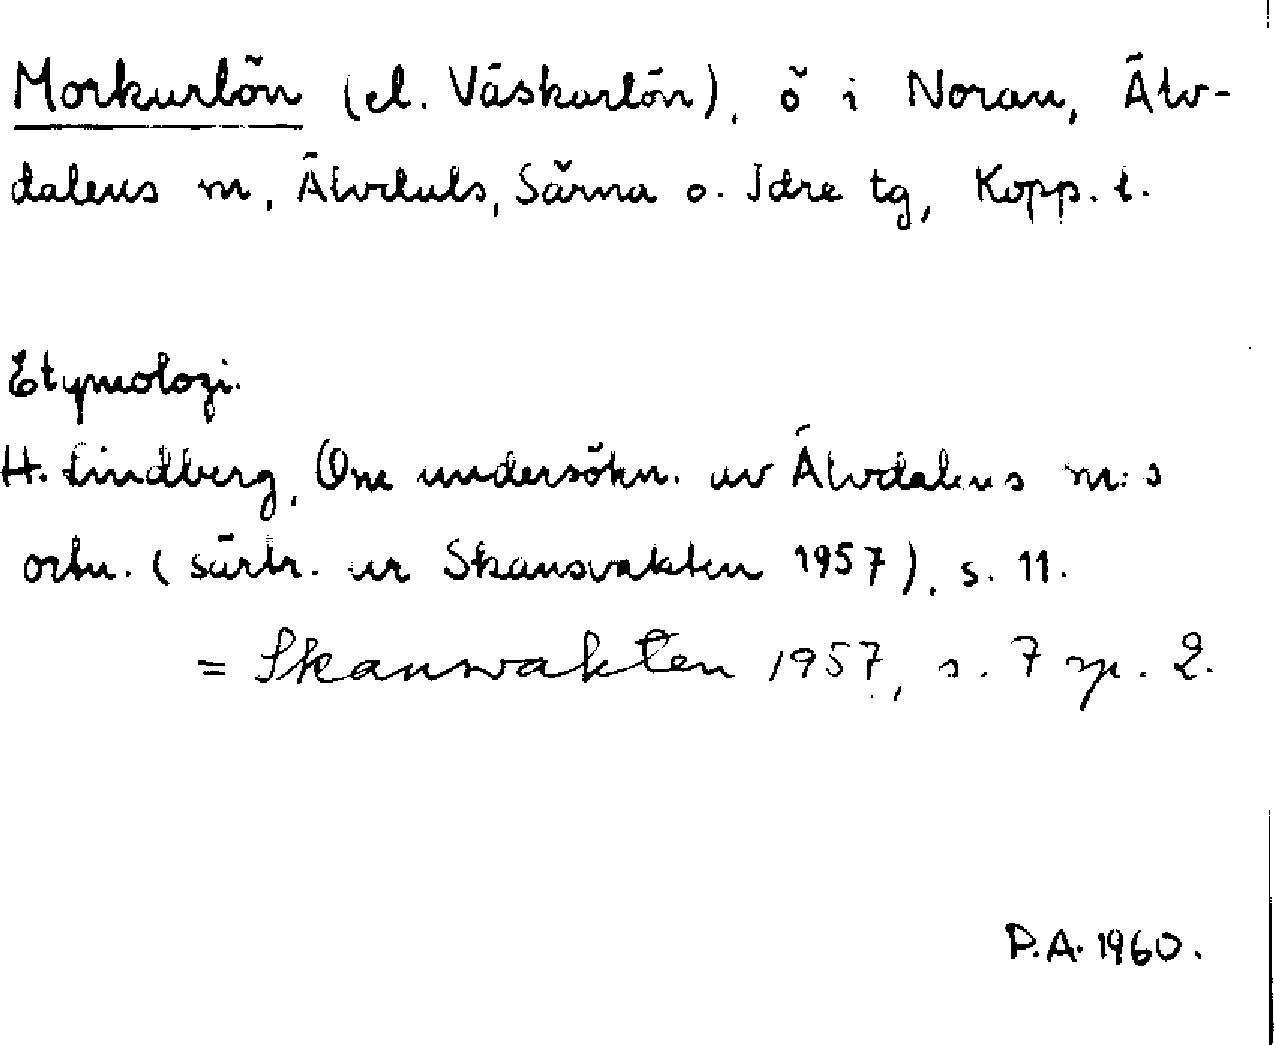 Morkarlön (el. Väskarlön), ö i Noran, Älv-
dalens sn, Älvdals, Särna o. Idre tg, Kopp. l.
Etymologi.
H. Lindberg, Om undersökn. av Älvdalens sn:s
ortn. (särtr. ur Skansvakten 1957), s. 11.
= Skansvakten 1957, s. 7 sp. 2.
P.A. 1960.